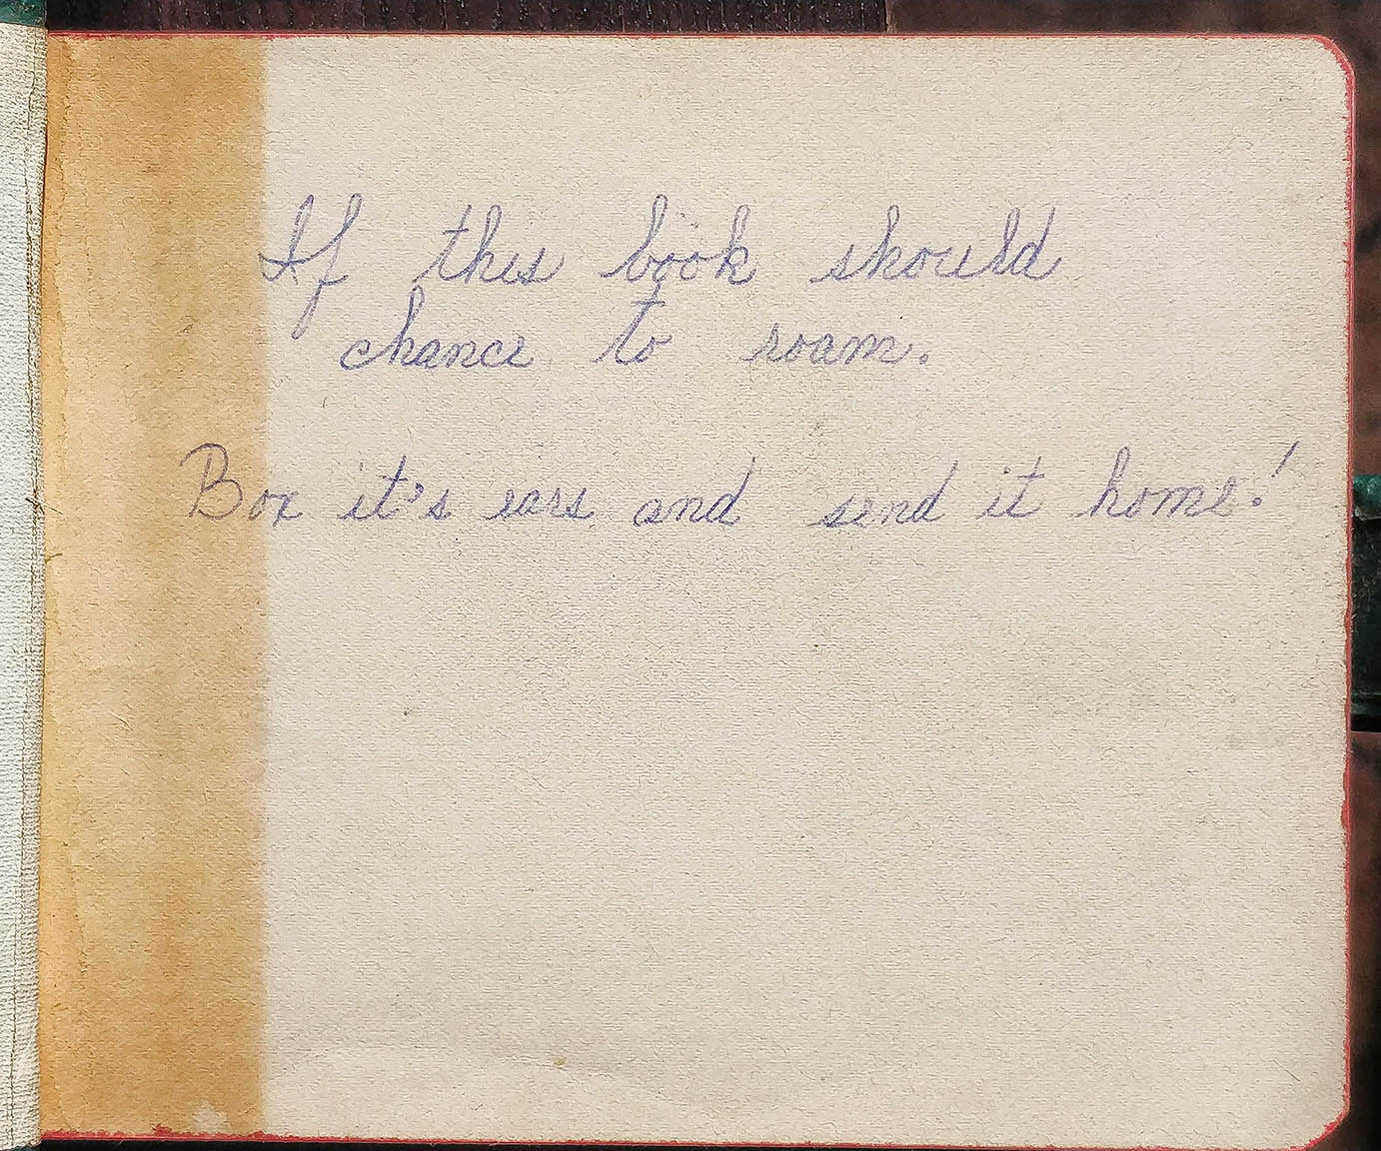 If this book should
chance to roam.
Box it's ears and send it home!